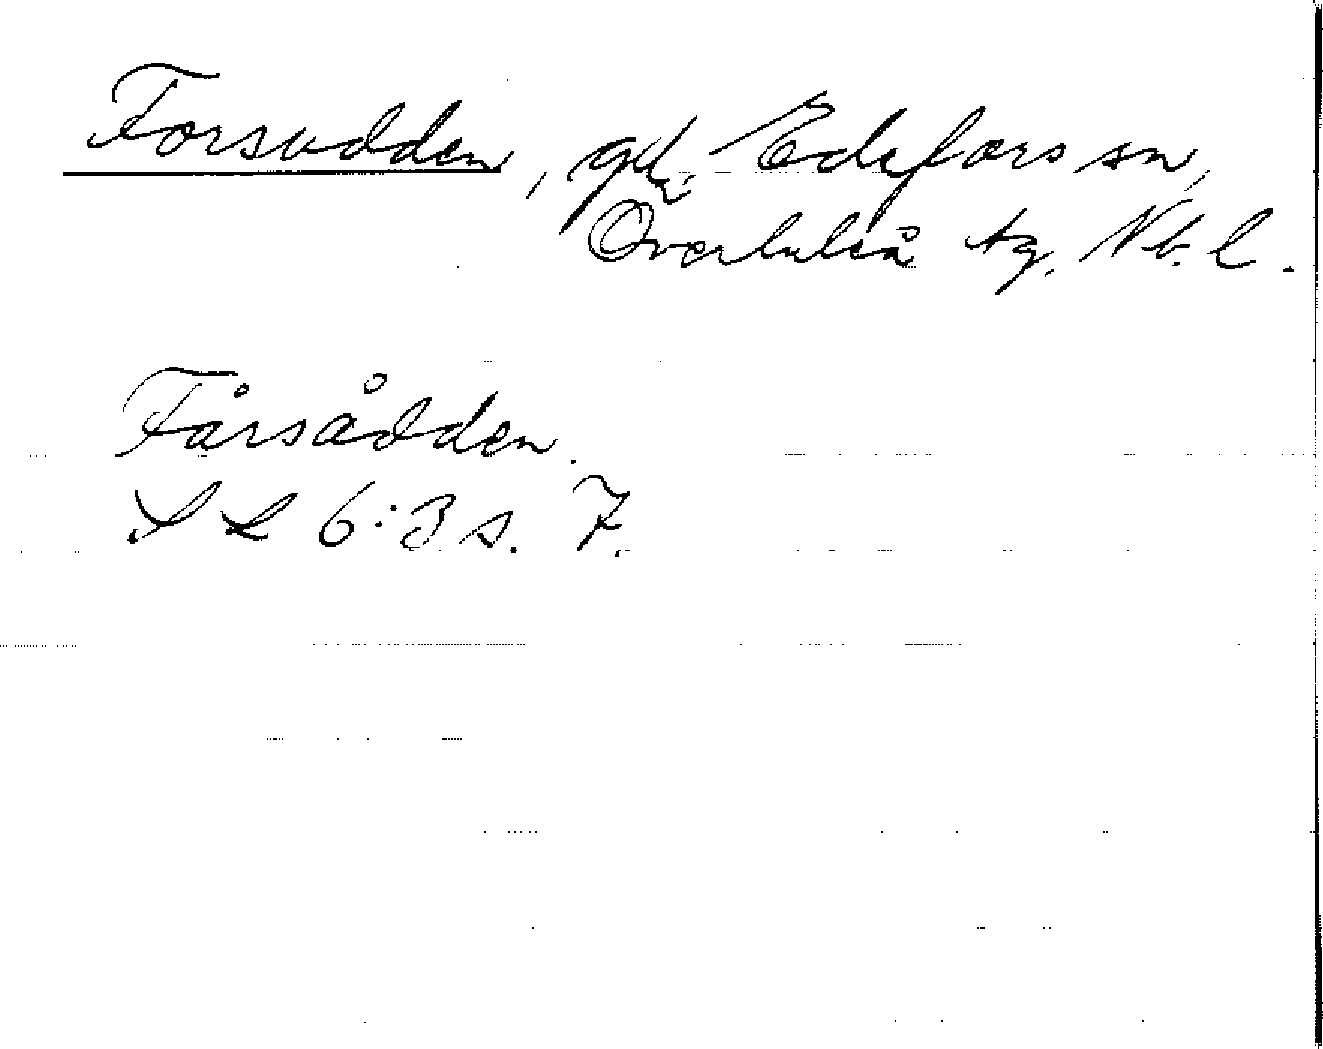 Forsudden, gd, Edefors sn,
Överluleå tg. Nb. l.
Fårsådden.
S L 6:3 s. 7.